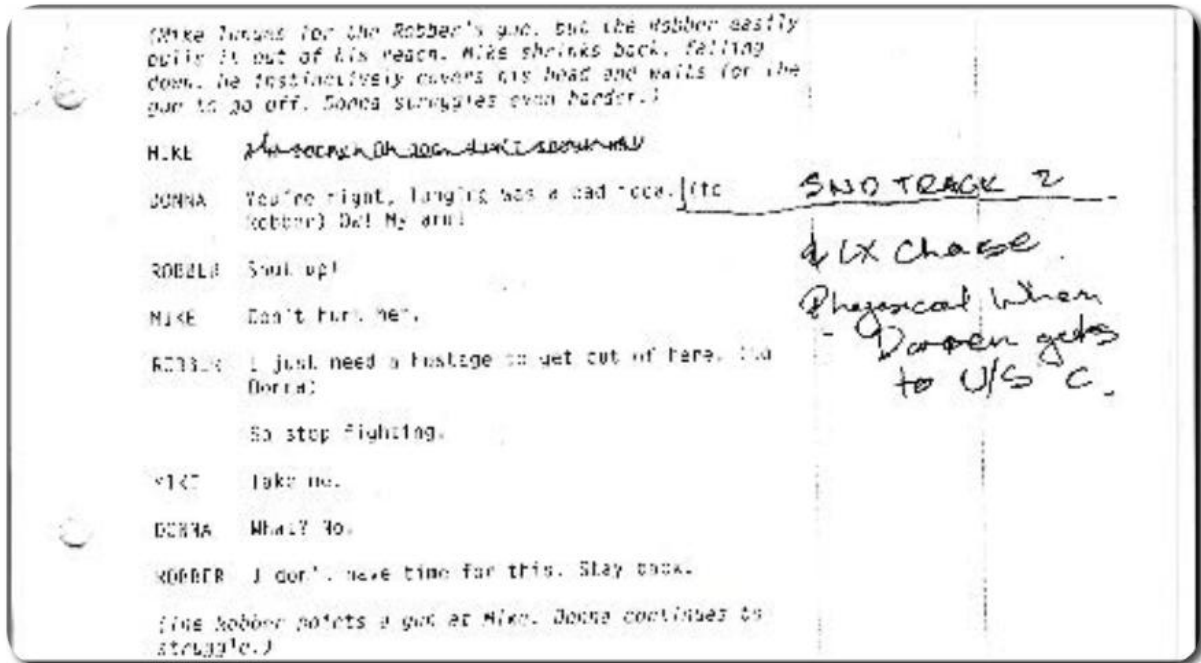 (Mike lunges for the Robber's gun, but the Robber easily
pulls it out of his reach. Mike shrinks back, falling
down, he instinctively covers his head and waits for the
gun to go off. Donna struggles even harder.)
MIKE
DONNA You're right, lunging was a bad idea. (to
Robber) Ow! My arm!
SND TRACK 2
& LX Chase.
Physical When
Darren gets
to U/S C.
ROBBER Shut up!
MIKE Don't hurt her.
ROBBER I just need a hostage to get out of here. (to
Donna)
So stop fighting.
MIKE Take me.
DONNA What? No.
ROBBER I don't have time for this. Stay back.
(The Robber points a gun at Mike. Donna continues to
struggle.)